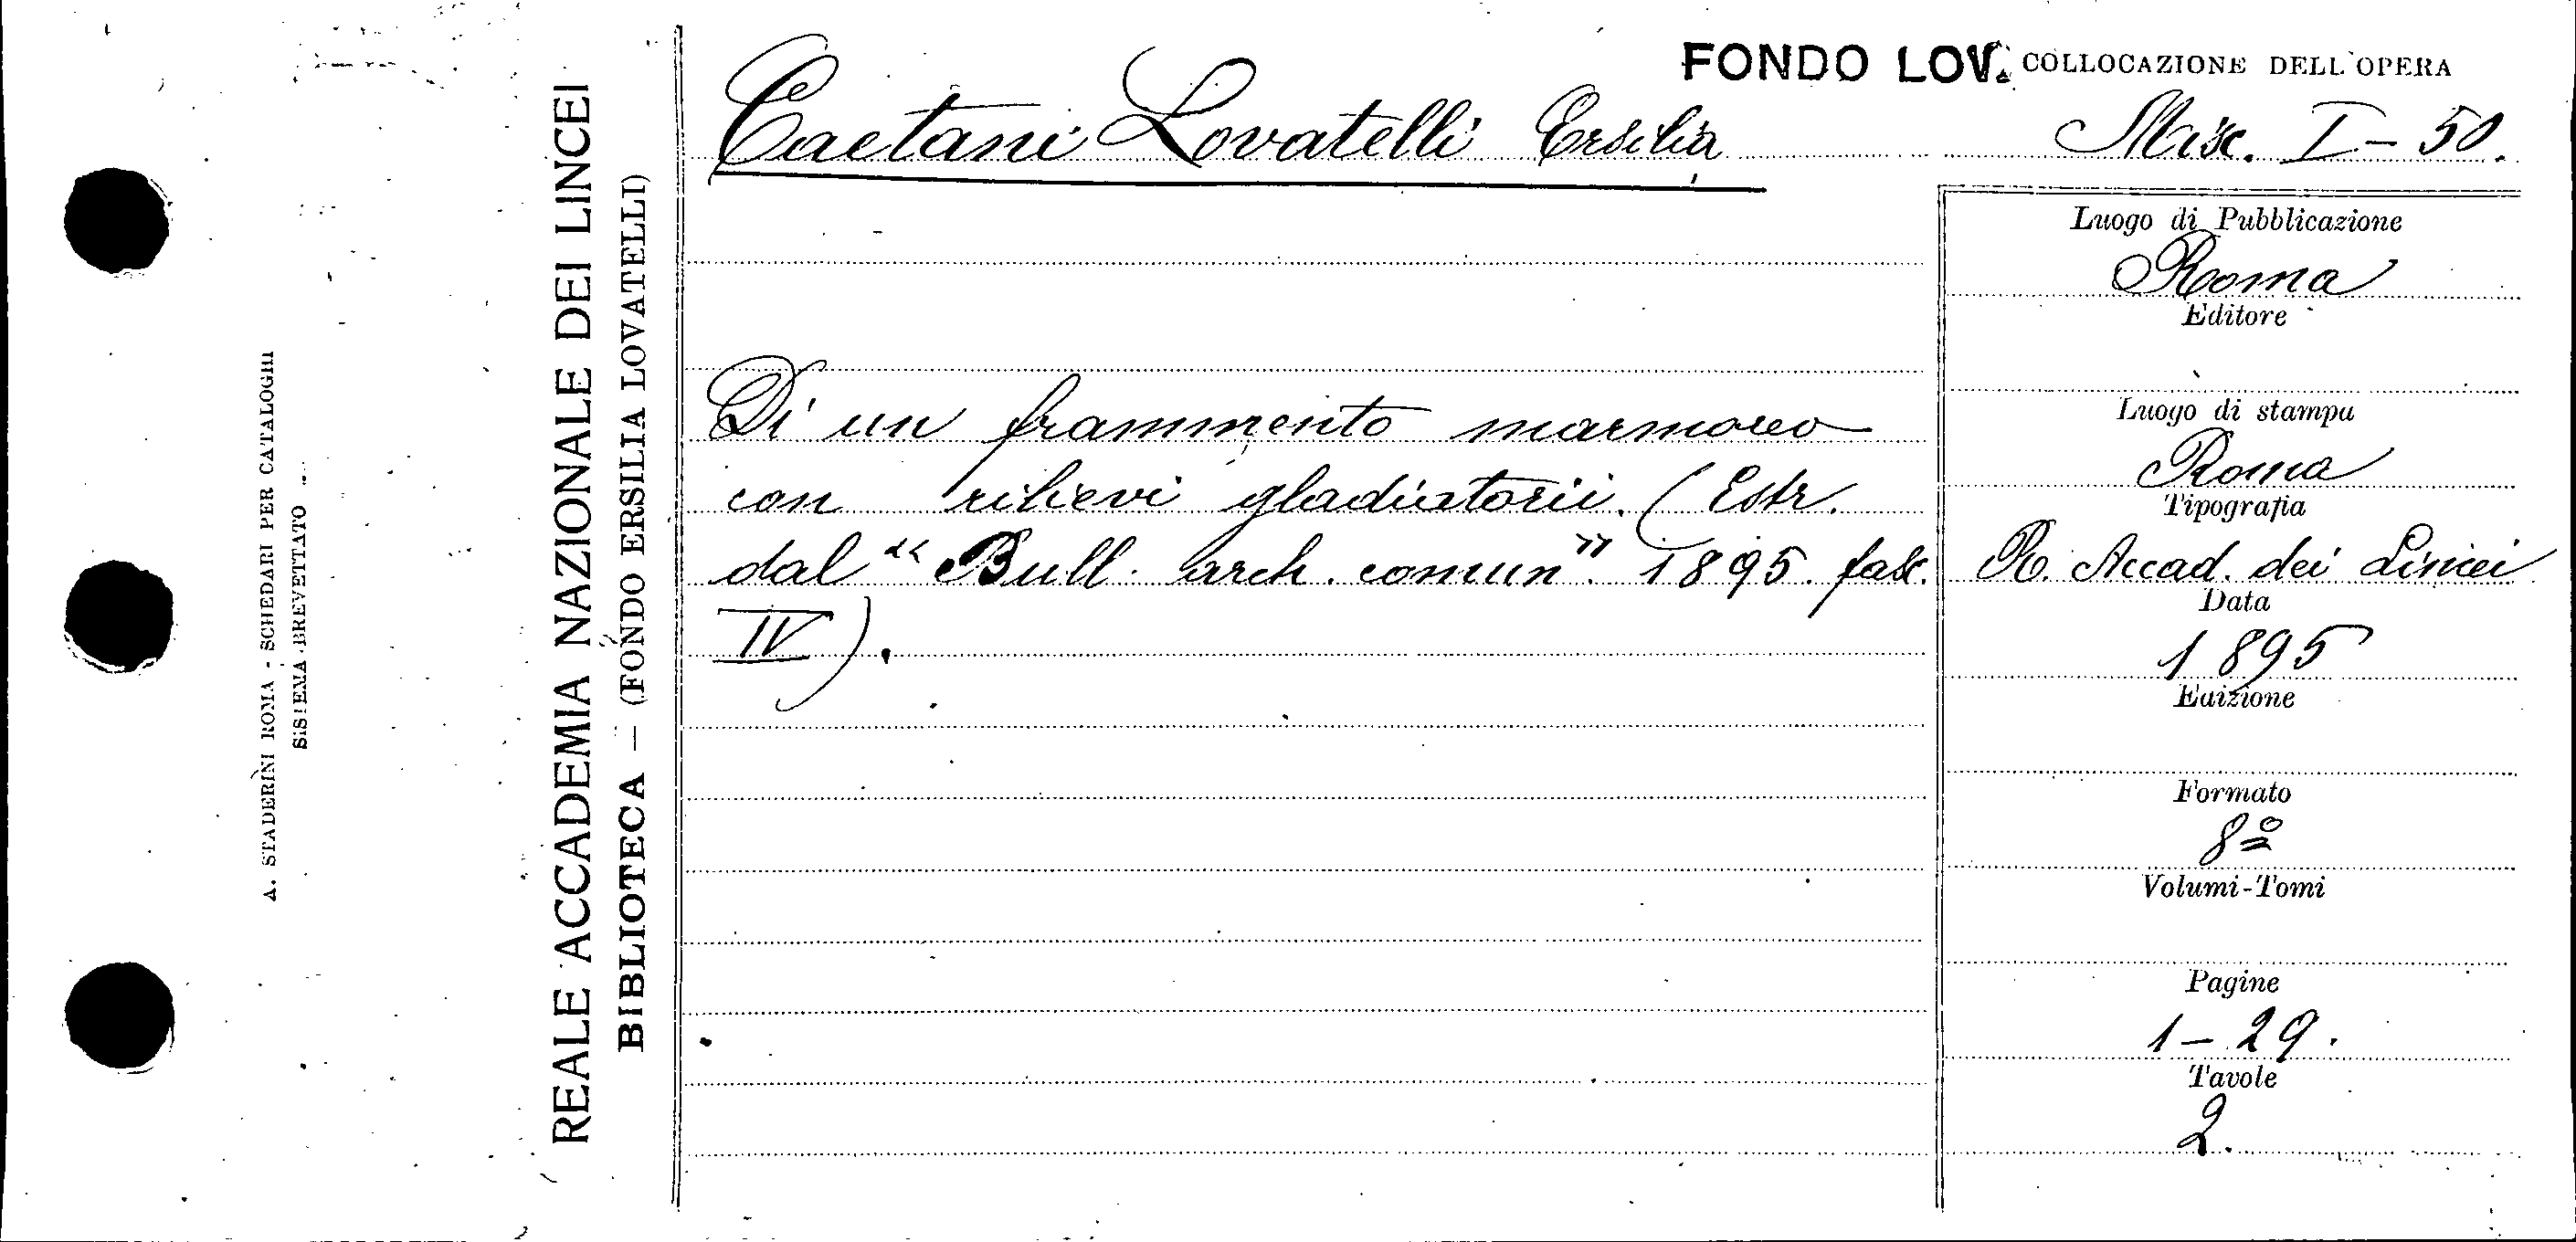 A. STADERINI ROMA - SCHEDARI PER CATALOGHI
SISTEMA BREVETTATO
REALE ACCADEMIA NAZIONALE DEI LINCEI
BIBLIOTECA — (FONDO ERSILIA LOVATELLI)
FONDO LOV. COLLOCAZIONE DELL'OPERA
Caetani Lovatelli Ersilia
Misc. I - 50.
Di un frammento marmoreo
con rilievi gladiatorii. (Estr.
dal "Bull. arch. comun". 1895. fasc.
IV).
Luogo di Pubblicazione
Roma
Editore
Luogo di stampa
Roma
Tipografia
R. Accad. dei Lincei
Data
1895
Edizione
Formato
8º
Volumi-Tomi
Pagine
1 - 29.
Tavole
2.